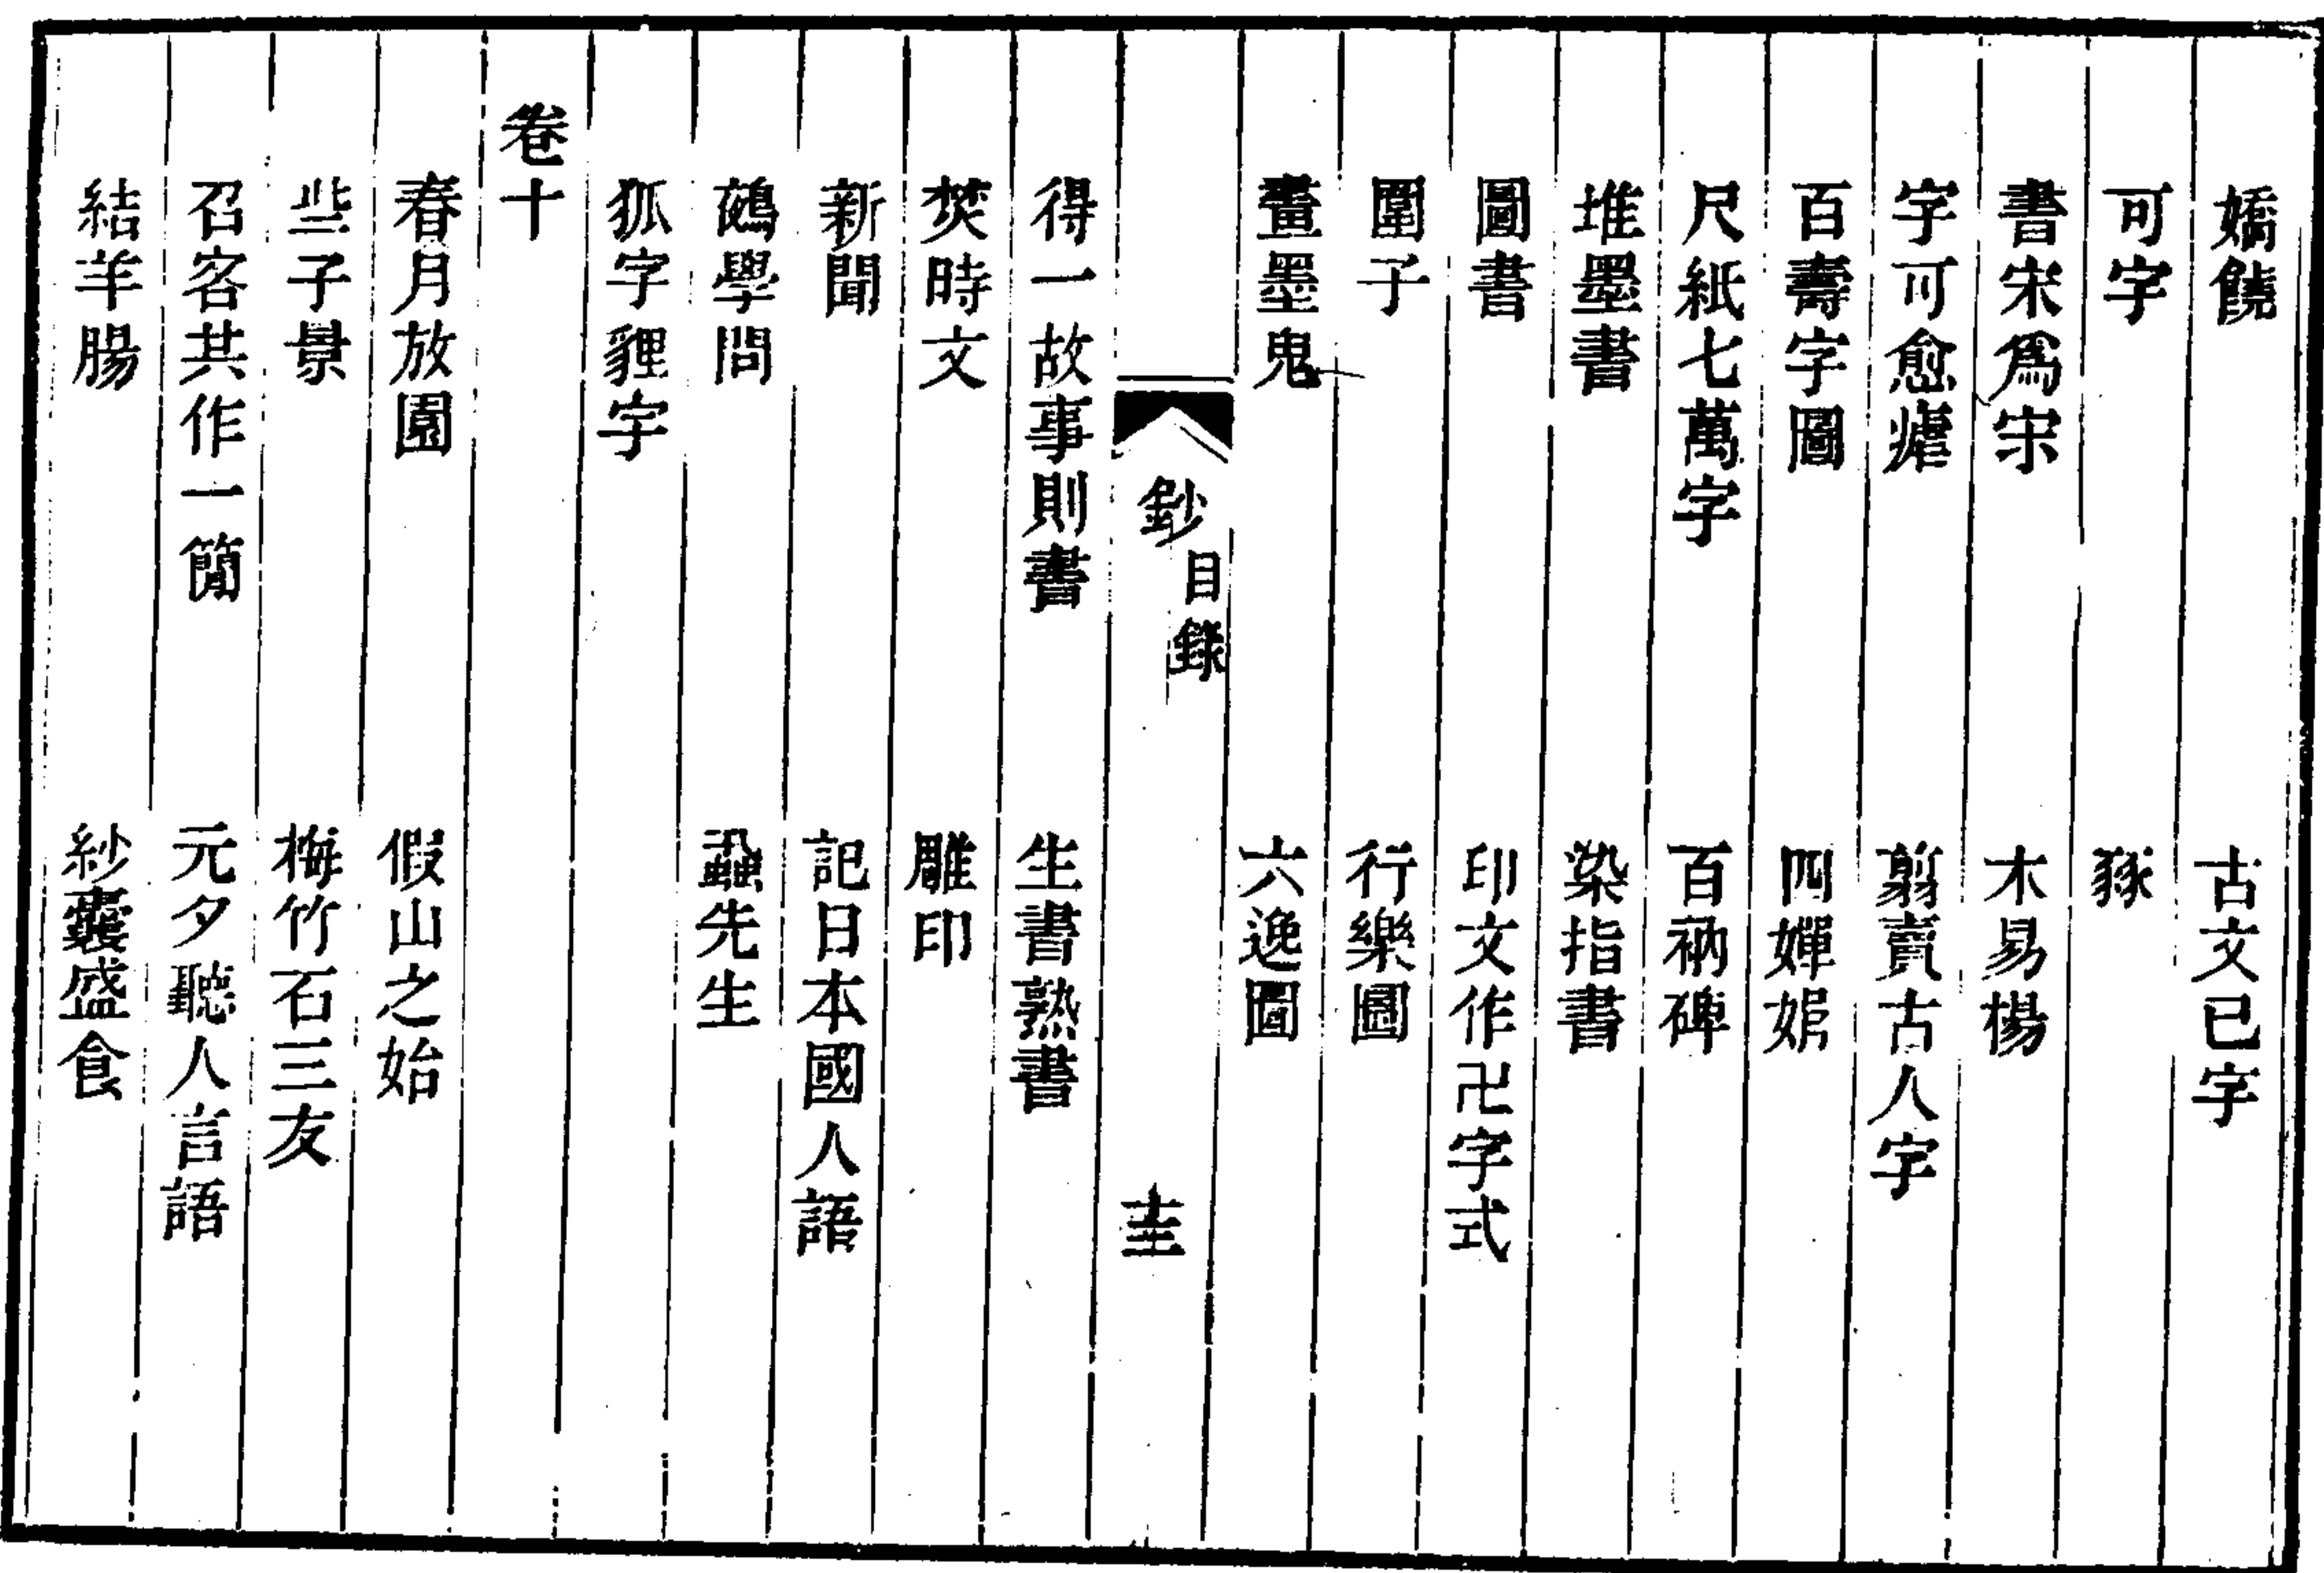 嬌饒　古文已字
可字　豥
書宋爲宋　木易楊
字可愈瘧　翦賣古人字
百壽字圖　四嬋娟
尺紙七萬字　百衲碑
堆墨書　染指書
圖書　印文作卍字式
圍子　行樂圖
畫墨鬼　六逸圖
鈔　目錄
得一故事則書　生書熟書
焚時文　雕印
新聞　記日本國人語
鵡學問　蝨先生
狐字貍字
卷十
春月放園　假山之始
些子景　梅竹石三友
召客共作一簡　元夕聽人言語
結羊腸　紗囊盛食